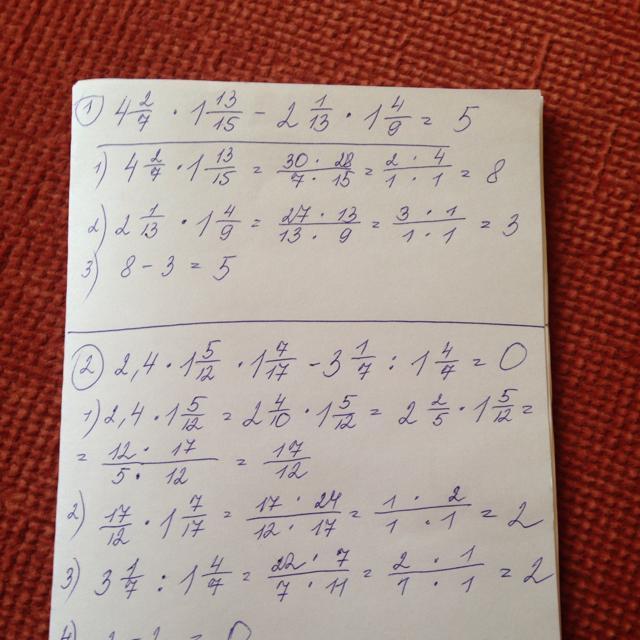 ① 4 2/7 · 1 13/15 - 2 1/13 · 1 4/9 = 5
1) 4 2/7 · 1 13/15 = 30 · 28 / 7 · 15 = 2 · 4 / 1 · 1 = 8
2) 2 1/13 · 1 4/9 = 27 · 13 / 13 · 9 = 3 · 1 / 1 · 1 = 3
3) 8 - 3 = 5
② 2,4 · 1 5/12 · 1 7/17 - 3 1/7 : 1 4/7 = 0
1) 2,4 · 1 5/12 = 2 4/10 · 1 5/12 = 2 2/5 · 1 5/12 =
= 12 · 17 / 5 · 12 = 17/12
2) 17/12 · 1 7/17 = 17 · 24 / 12 · 17 = 1 · 2 / 1 · 1 = 2
3) 3 1/7 : 1 4/7 = 22 · 7 / 7 · 11 = 2 · 1 / 1 · 1 = 2